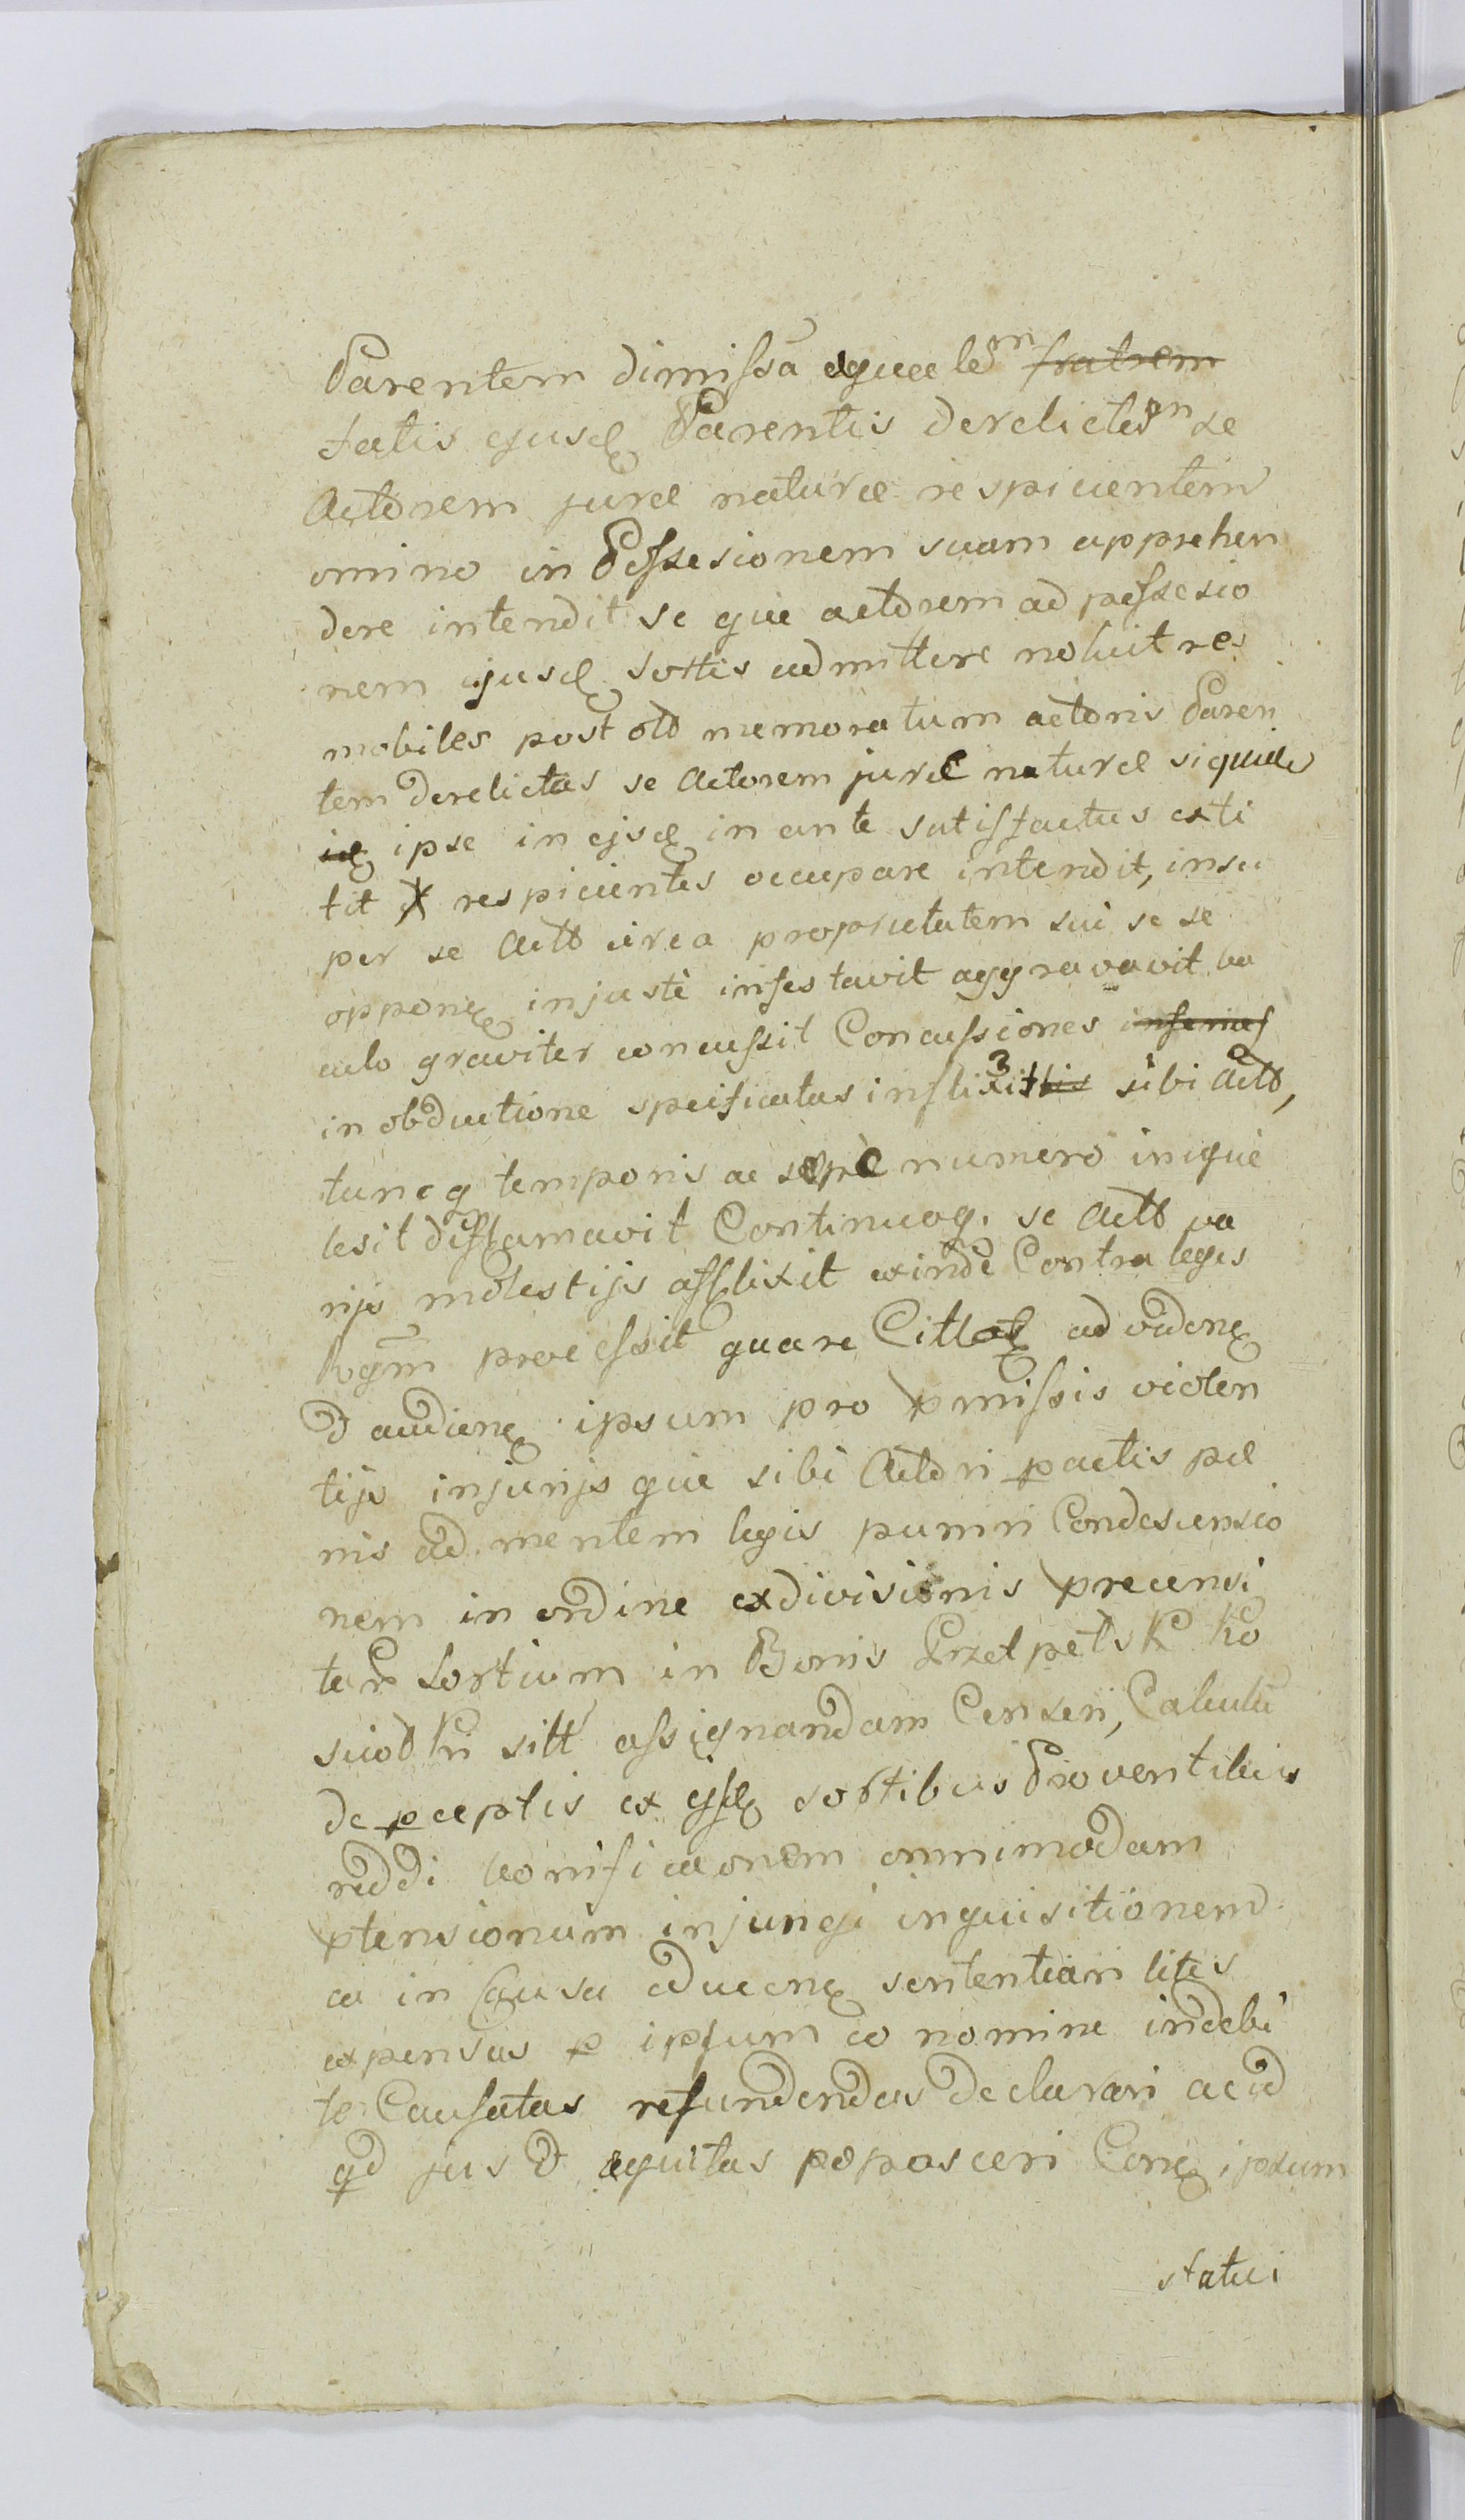 Parentem dimissa equalem fratrem
tatis ejusq Parentis derelictem se
Actorem jure nature respicientem
omino in Possesionem suam apprehen
dere intendit se que actorem ad possesio
nem ejusq sortis admittere noluit res
mobiles post olb memoratum actoris Paren
tem derelictas se Actorem jure nature siquide
ipse in ejsq in ante satisfactus exti
tit respicientes occupare intendit, insu
per se Actb circa proprietatem sui se se
oppone injuste infestavit aggravavit ba
culo graviter concussit Concussiones inferius
in obductione specificatas inflixit sibi Actb,
tuncq temporis ac sepe numero inique
lesit diffamavit Continuoq. se Actb va
rijs molestijs afflixit exinde Contra leges
Rgm processit quare Cittatq ad viden
et audien ipsum pro pmissis violen
tijs injurijs que sibi Actori pactis pe
nis ad mentem legis puniri Condescensio
nem in ordine exdivisionis precensi
tar sortium in Bonis
sitt assignandam Censeri, Calculu
de pceptis ex ejsq sortibus Proventibus
reddi bonificaonem omnimodam
ptensionum injungi inquisitionem
a in Causa educen sententiari litis
expensas p ipsum eo nomine indebi
te Causatas refundendas declarari ac id
qd jus et equitas poposceri Conq ipsum
statui